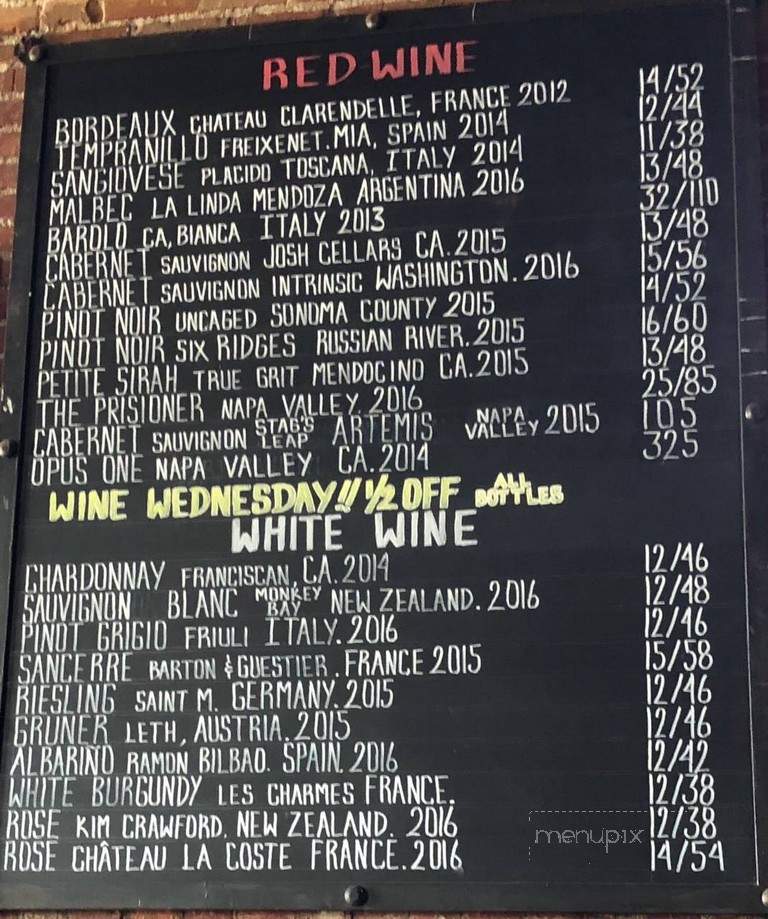 RED WINE
BORDEAUX CHATEAU CLARENDELLE, FRANCE 2012 14/52
TEMPRANILLO FREIXENET.MIA, SPAIN 2014 12/44
SANGIOVESE PLACIDO TOSCANA, ITALY 2014 11/38
MALBEC LA LINDA MENDOZA ARGENTINA 2016 13/48
BAROLO CA, BIANCA ITALY 2013 32/110
CABERNET SAUVIGNON JOSH CELLARS CA.2015 13/48
CABERNET SAUVIGNON INTRINSIC WASHINGTON.2016 15/56
PINOT NOIR UNCAGED SONOMA COUNTY 2015 14/52
PINOT NOIR SIX RIDGES RUSSIAN RIVER.2015 16/60
PETITE SIRAH TRUE GRIT MENDOCINO CA.2015 13/48
THE PRISIONER NAPA VALLEY, 2016 25/85
CABERNET SAUVIGNON STAG'S LEAP ARTEMIS NAPA VALLEY 2015 105
OPUS ONE NAPA VALLEY, CA.2014 325
WINE WEDNESDAY!! 1/2 OFF ALL BOTTLES
WHITE WINE
CHARDONNAY FRANCISCAN, CA.2014 12/46
SAUVIGNON BLANC MONKEY BAY NEW ZEALAND.2016 12/48
PINOT GRIGIO FRIULI ITALY.2016 12/46
SANCERRE BARTON & GUESTIER.FRANCE 2015 15/58
RIESLING SAINT M. GERMANY.2015 12/46
GRUNER LETH, AUSTRIA.2015 12/46
ALBARIÑO RAMON BILBAO. SPAIN.2016 12/42
WHITE BURGUNDY LES CHARMES FRANCE. 12/38
ROSE KIM CRAWFORD. NEW ZEALAND. 2016 12/38
ROSE CHÂTEAU LA COSTE FRANCE.2016 14/54
menupix